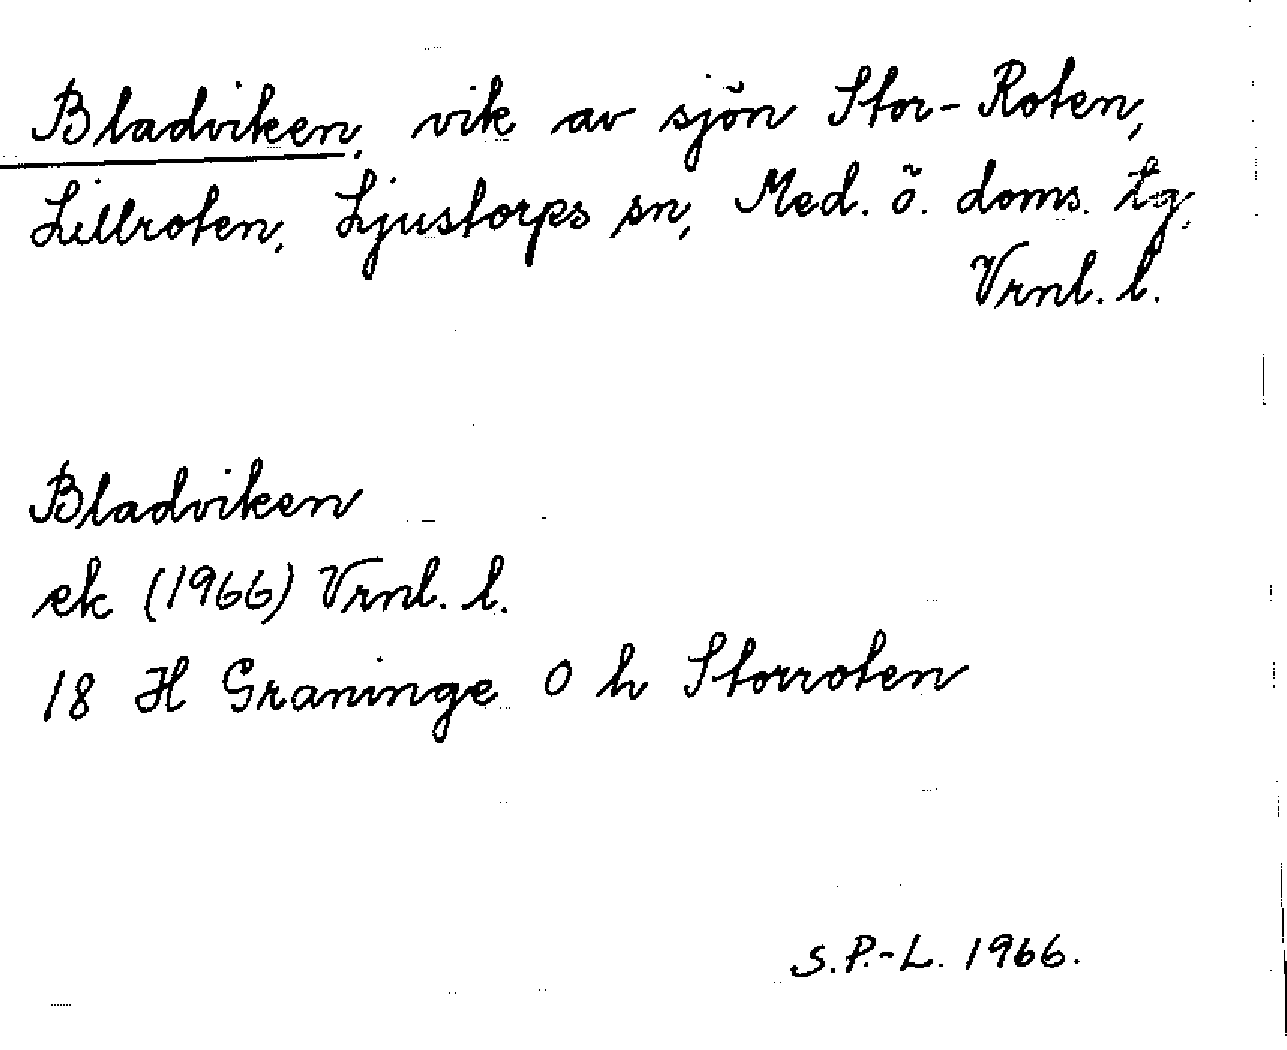 Bladviken, vik av sjön Stor-Roten,
Lillroten, Ljustorps sn, Med. ö. doms. tg,
Vrnl. l.
Bladviken
ek (1966) Vrnl. l.
18 H Graninge O h Storroten
S.P.-L. 1966.